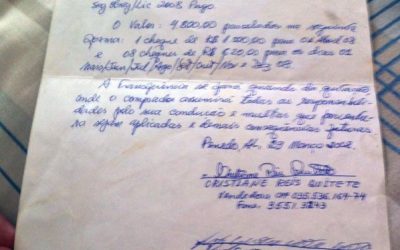 Seg Obrg/Lic 2008 Pago.
O Valor: 4.800,00 parcelados na seguinte
forma: 1 cheque de R$ para 01 Abril 08
e 08 cheques de R$ 620,00 para os dias 01
Maio/Jun/Jul/Ago/Set/Out/Nov e Dez 08
A Transferência se fará quando da quitação,
onde o comprador assumirá todas as responsabili-
dades pelo sua condução e multas que porventu-
ra sejam aplicadas e demais consequências futuras
Penedo AL. 29 Março
CRISTIANE REIS QUITETE
Vendedora CPF 035.536.164-74
Fone. 3551.3243